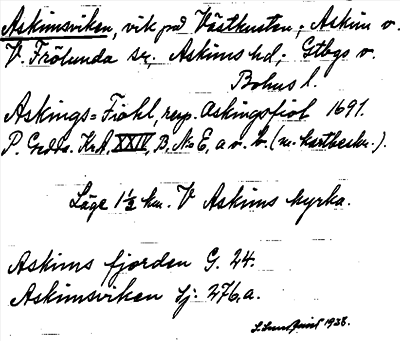 Askimsviken, vik på Västkusten; Askim o.
V. Frölunda sr, Askims hd; Gtbgs o.
Bohus l.
Askings=Fiohl, resp. Askingsfiol 1691.
P. Gedda. KrA, XXIV, B, No E, a o. b. (m. kartbeskr.).
Läge 1½ km. V Askims kyrka.
Askims fjorden G. 24.
Askimsviken Sj. 276, a.
1938.